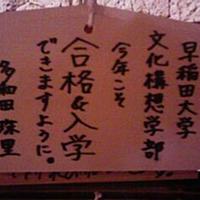 早稲田大学
文化構想学部
今年こそ
合格&入学
できますように。
多和田麻里